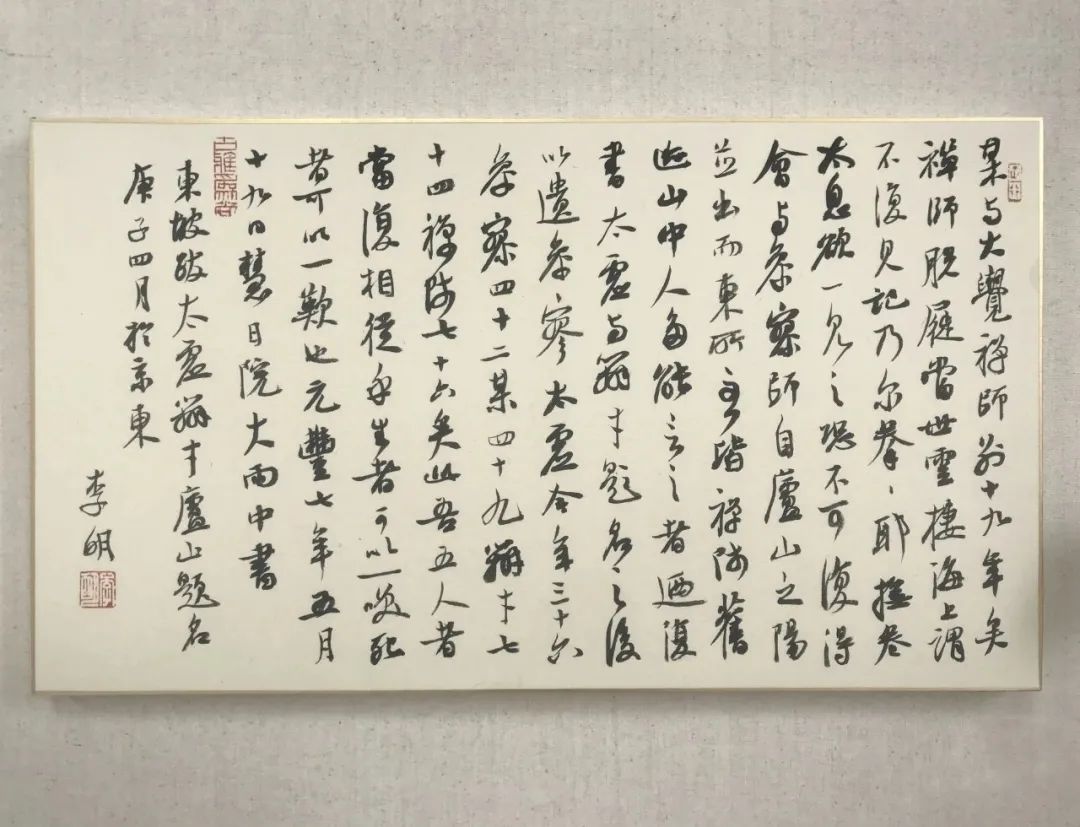 某与大覺禅師別十九年矣
禪師脱屣當世雲棲海上謂
不復見記乃尔拳〻耶撫卷
太息欲一見之恐不可復得
會与参寥師自廬山之陽
並出而東所至皆禅師舊
迹山中人多能言之者迺復
書太虚与辯才題名之後
以遺参寥太虚今年三十六
参寥四十二某四十九辯才七
十四禅師七十六矣此吾五人者
當復相從乎生者可以一咲死
者可以一歎也元豐七年五月
十九日慧日院大雨中書
東坡跋太虚辯才廬山題名
庚子四月於京東
李明